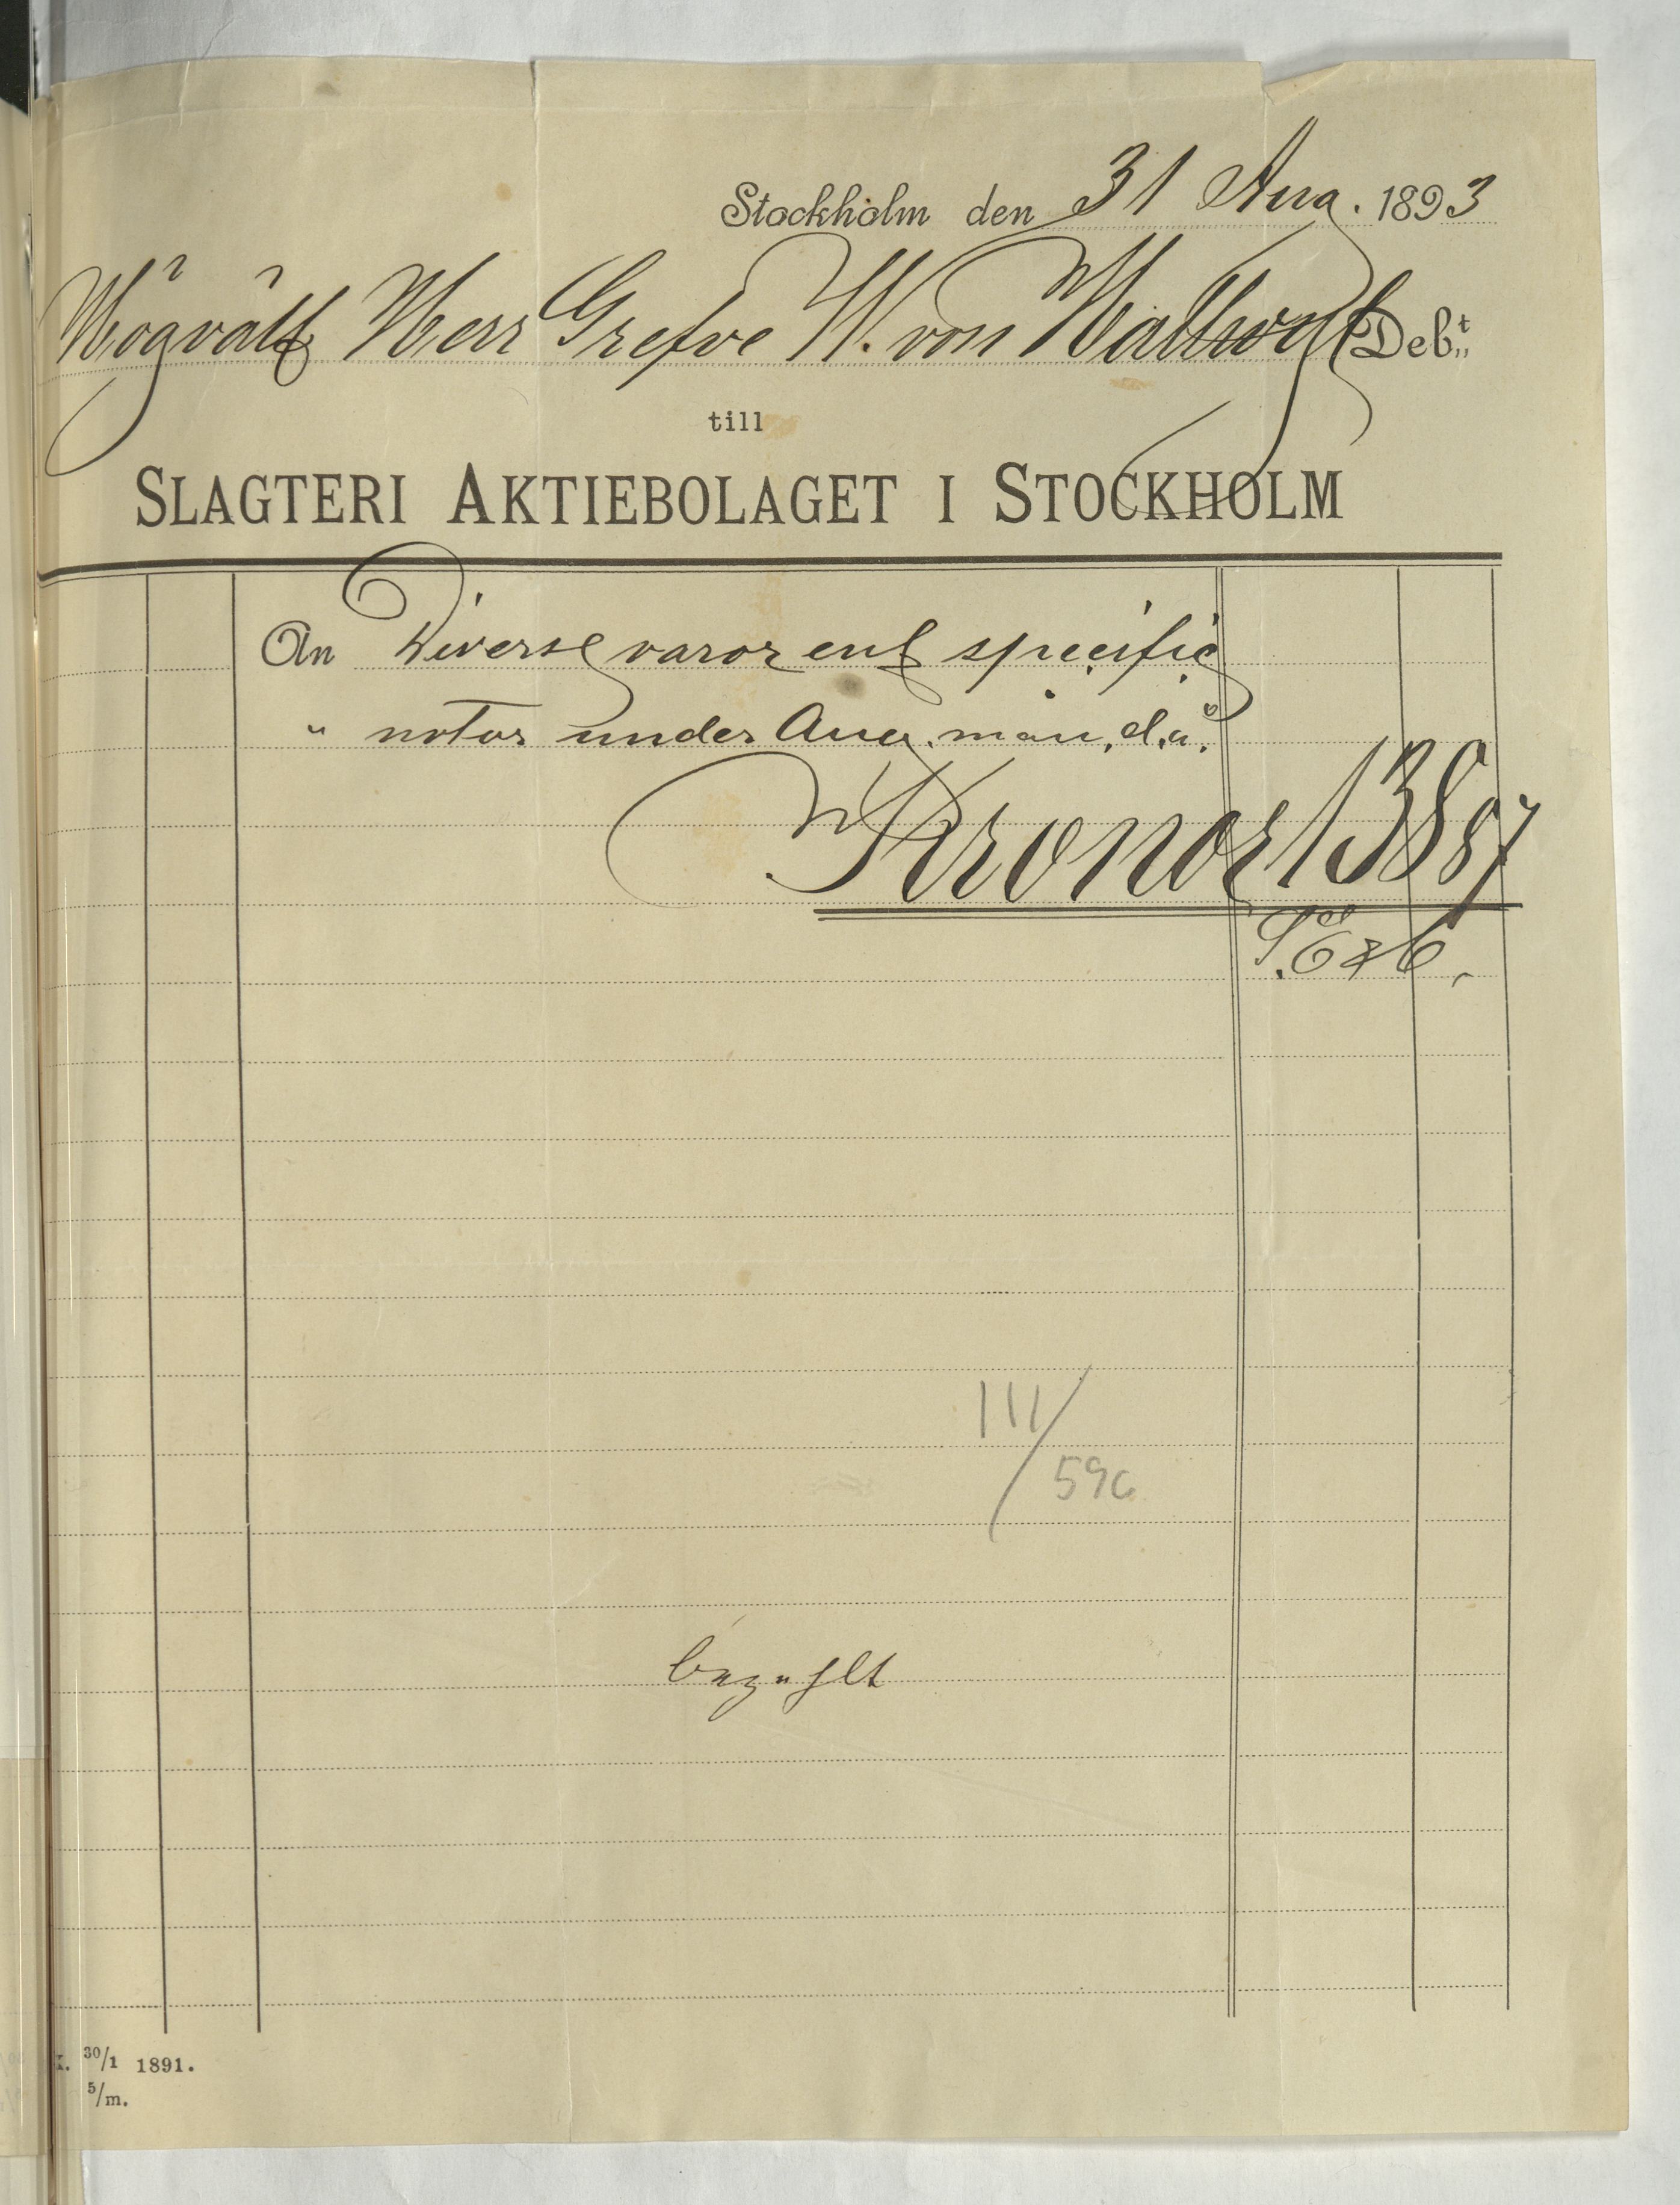 Stockholm den 31 Aug. 1893
Högvälb Herr Grefve W. von Hallwyl Debt
till
SLAGTERI AKTIEBOLAGET I STOCKHOLM
An Diverse varor enl specific
" notor under Aug. mån, d.å.
Kronor 138 87
S. E & O.
111/596
bezahlt
30/1 1891.
5/m.